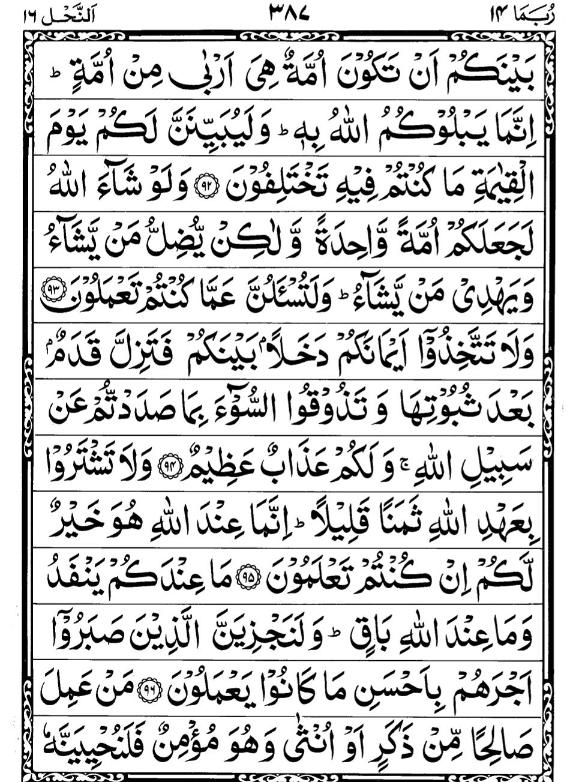 رُبَمَا ١٤
٣٨٧
اَلنَّحْل ١٦
بَيْنَكُمْ اَنْ تَكُوْنَ اُمَّةٌ هِيَ اَرْبٰى مِنْ اُمَّةٍ ؕ
اِنَّمَا يَبْلُوْكُمُ اللّٰهُ بِهٖ ؕ وَلَيُبَيِّنَنَّ لَكُمْ يَوْمَ
الْقِيٰمَةِ مَا كُنْتُمْ فِيْهِ تَخْتَلِفُوْنَ ﴿۹۲﴾ وَلَوْ شَآءَ اللّٰهُ
لَجَعَلَكُمْ اُمَّةً وَّاحِدَةً وَّلٰكِنْ يُّضِلُّ مَنْ يَّشَآءُ
وَيَهْدِيْ مَنْ يَّشَآءُ ؕ وَلَتُسْـَٔلُنَّ عَمَّا كُنْتُمْ تَعْمَلُوْنَ ﴿۹۳﴾
وَلَا تَتَّخِذُوْۤا اَيْمَانَكُمْ دَخَلًاۢ بَيْنَكُمْ فَتَزِلَّ قَدَمٌۢ
بَعْدَ ثُبُوْتِهَا وَتَذُوْقُوا السُّوْٓءَ بِمَا صَدَدْتُّمْ عَنْ
سَبِيْلِ اللّٰهِ ۚ وَلَكُمْ عَذَابٌ عَظِيْمٌ ﴿۹۴﴾ وَلَا تَشْتَرُوْا
بِعَهْدِ اللّٰهِ ثَمَنًا قَلِيْلًا ؕ اِنَّمَا عِنْدَ اللّٰهِ هُوَ خَيْرٌ
لَّكُمْ اِنْ كُنْتُمْ تَعْلَمُوْنَ ﴿۹۵﴾ مَا عِنْدَكُمْ يَنْفَدُ
وَمَا عِنْدَ اللّٰهِ بَاقٍ ؕ وَلَنَجْزِيَنَّ الَّذِيْنَ صَبَرُوْۤا
اَجْرَهُمْ بِاَحْسَنِ مَا كَانُوْا يَعْمَلُوْنَ ﴿۹۶﴾ مَنْ عَمِلَ
صَالِحًا مِّنْ ذَكَرٍ اَوْ اُنْثٰى وَهُوَ مُؤْمِنٌ فَلَنُحْيِيَنَّهٗ